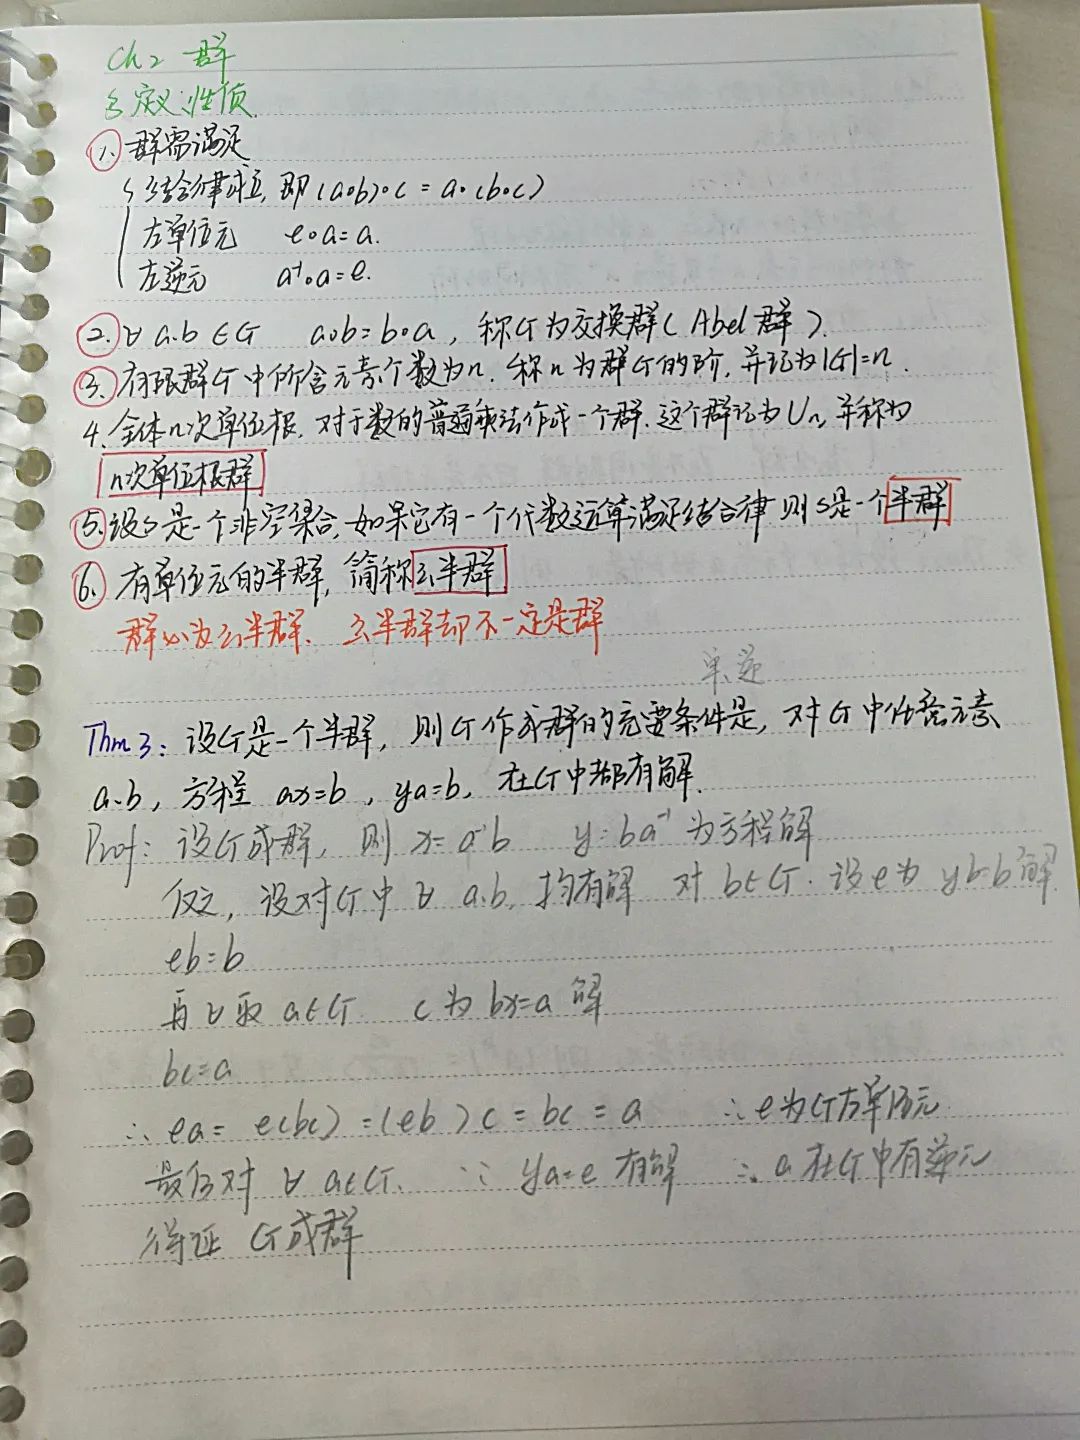 Ch2 群
§ 定义,性质
1. 群需满足
结合律成立, 即 (a∘b)∘c = a∘(b∘c)
左单位元 e∘a=a.
左逆元 a⁻¹∘a=e.
2. ∀ a.b ∈G a∘b=b∘a, 称G为交换群(Abel群).
3. 有限群G中所含元素个数为n. 称n为群G的阶, 并记为|G|=n.
4. 全体n次单位根, 对于数的普通乘法作成一个群. 这个群记为Un, 并称为
n次单位根群
5. 设S是一个非空集合, 如果它有一个代数运算满足结合律 则S是一个半群
6. 有单位元的半群, 简称幺半群
群必为幺半群. 幺半群却不一定是群
单、逆
Thm 3: 设G是一个半群, 则G作成群的充要条件是, 对G中任意元素
a.b, 方程 ax=b, ya=b, 在G中都有解.
Prof: 设G成群, 则 x=a⁻¹b y=ba⁻¹ 为方程解
反之, 设对G中 ∀ a.b, 均有解 对 b∈G. 设e为 yb=b 解
eb=b
再∀取 a∈G. c为 bx=a 解
bc=a
∴ ea= e(bc) =(eb)c = bc = a ∴e为G左单位元
最后对 ∀ a∈G. ∵ ya=e 有解 ∴ a在G中有逆元
得证 G成群